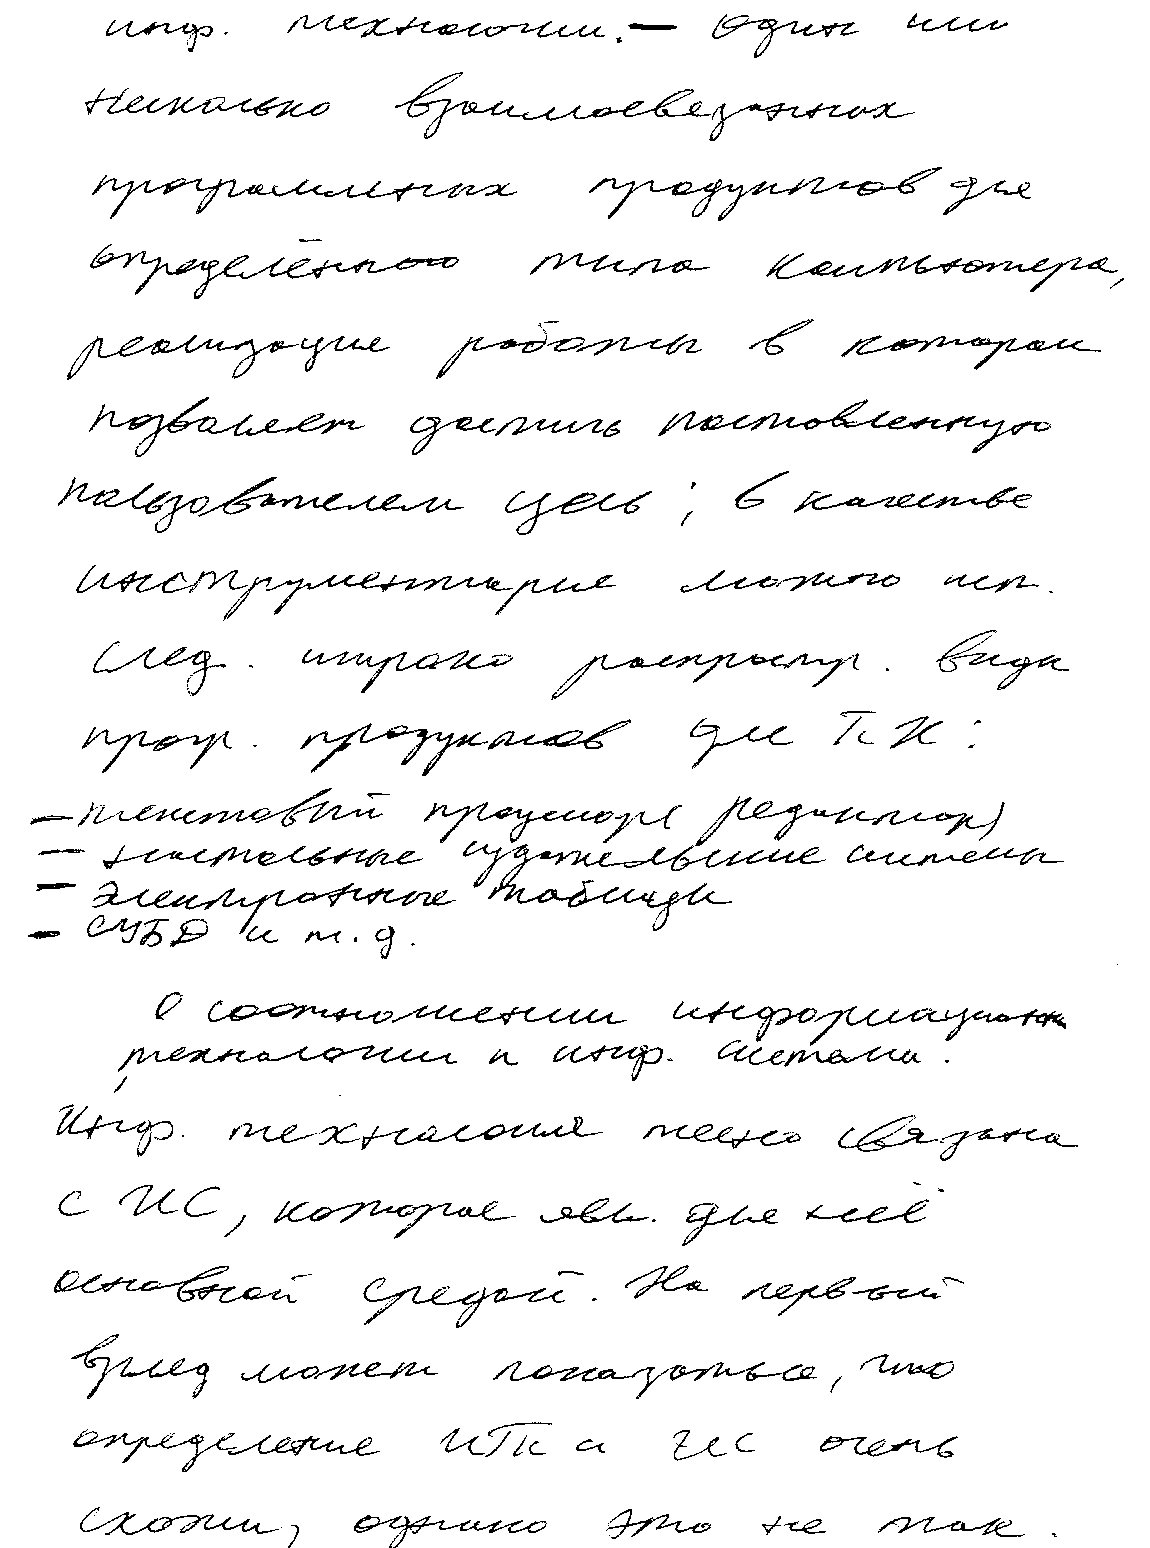 инф. технологии. — один или
несколько взаимосвязанных
программных продуктов для
определённого типа компьютера,
реализация работы в котором
позволяет достичь поставленную
пользователем цель; в качестве
инструментария можно исп.
след. широко распростр. виды
прогр. продуктов для ПК:
— текстовый процессор (редактор)
— настольные издательские системы
— электронные таблицы
— СУБД и т.д.
О соотношении информационн
технологии и инф. системы.
Инф. технология тесно связана
с ИС, которая явл. для неё
основной средой. На первый
взгляд может показаться, что
определение и ИС очень
схожи, однако это не так.